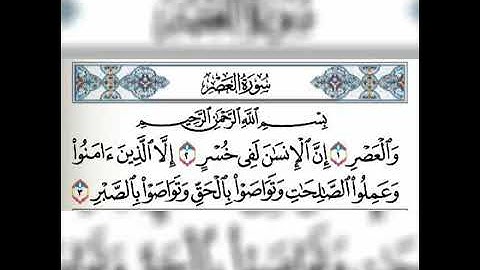 سُورَةُ العَصْرِ
بِسْمِ اللَّهِ الرَّحْمَٰنِ الرَّحِيمِ
وَالْعَصْرِ ۝١ إِنَّ الْإِنسَانَ لَفِي خُسْرٍ ۝٢ إِلَّا الَّذِينَ ءَامَنُوا
وَعَمِلُوا الصَّالِحَاتِ وَتَوَاصَوْا بِالْحَقِّ وَتَوَاصَوْا بِالصَّبْرِ ۝٣